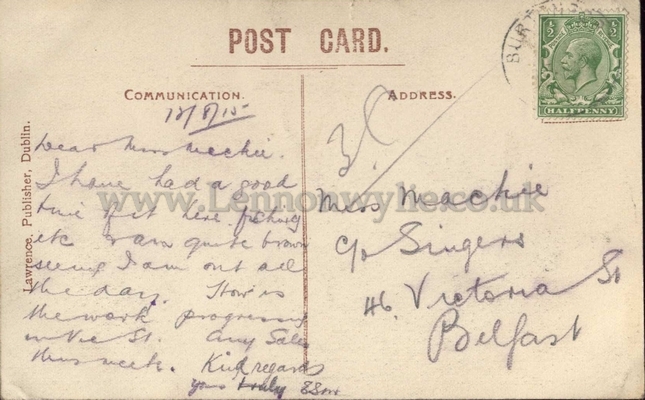 POST CARD.
COMMUNICATION.
ADDRESS.
12/8/15
Dear Miss Mackie.
I have had a good
time of it here fishing
etc & am quite brown
seeing I am out all
the day. How is
the work progressing
in Vic St. Any Sales
this week. Kind regards
yours truly
Miss Mackie
c/o Singers
46 Victoria St
Belfast
Lawrence, Publisher, Dublin.
½ ½
HALFPENNY
BUR
www.Lennonwylie.co.uk